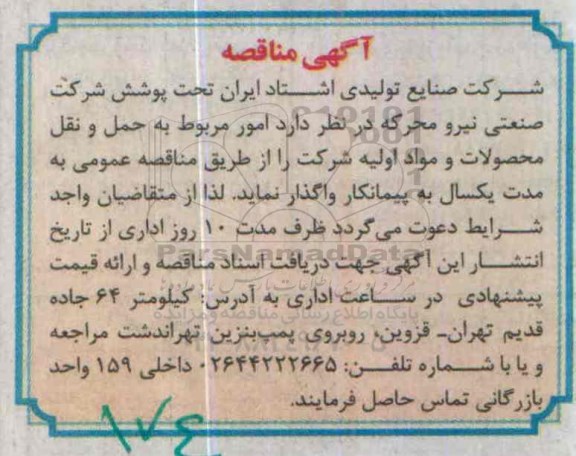 آگهی مناقصه
شرکت صنایع تولیدی اشتاد ایران تحت پوشش شرکت
صنعتی نیرو محرکه در نظر دارد امور مربوط به حمل و نقل
محصولات و مواد اولیه شرکت را از طریق مناقصه عمومی به
مدت یکسال به پیمانکار واگذار نماید. لذا از متقاضیان واجد
شرایط دعوت می‌گردد ظرف مدت ۱۰ روز اداری از تاریخ
انتشار این آگهی جهت دریافت اسناد مناقصه و ارائه قیمت
پیشنهادی در ساعت اداری به آدرس: کیلومتر ۶۴ جاده
قدیم تهران- قزوین، روبروی پمپ‌بنزین تهراندشت مراجعه
و یا با شماره تلفن: ۰۲۶۴۴۲۲۲۶۶۵ داخلی ۱۵۹ واحد
بازرگانی تماس حاصل فرمایند.
ParsNamadData
پایگاه اطلاع رسانی مناقصه و مزایده
۱۷۴